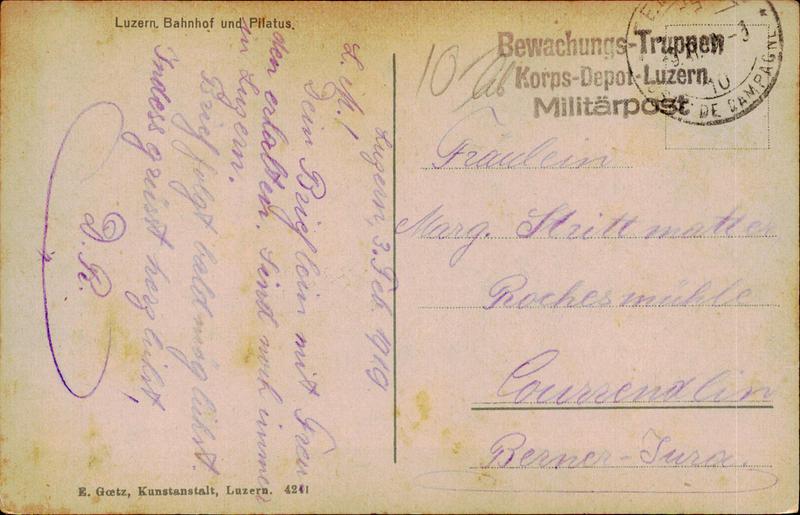 Luzern, Bahnhof und Pilatus.
Luzern, 3. Feb. 1919
L. M.!
Dein Brieflein mit Freu
den erhalten. Sind noch immer
in Luzern.
Brief folgt bald möglichst.
Indess grüsst herzlichst,
D. R.
E. Gœtz, Kunstanstalt, Luzern. 4241
Bewachungs-Truppen
Korps-Depot-Luzern.
Militärpost
DE CAMPAGNE
10
Fräulein
Marg. Strittmatter
Rochesmühle
Courrendlin
Berner-Jura.